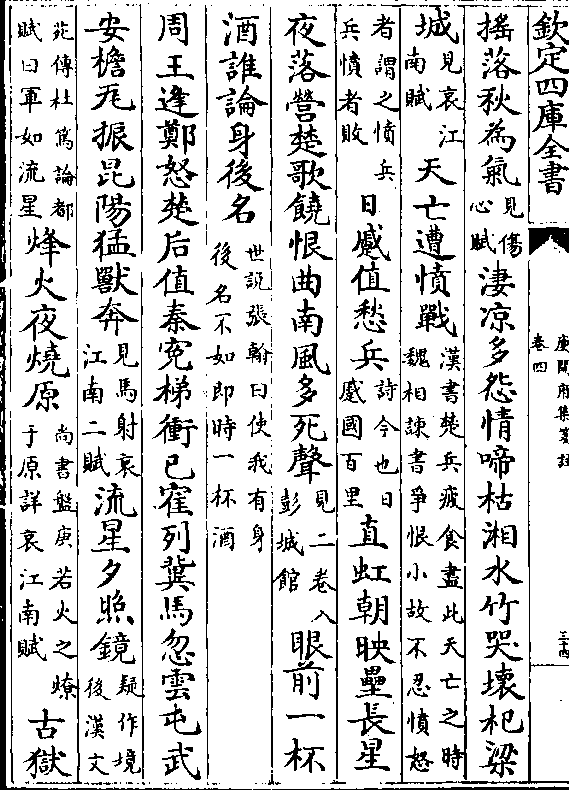 欽定四庫全書
庾開府集箋註
卷四
三十四
搖落秋為氣見傷心賦淒涼多怨情啼枯湘水竹哭壞杞梁
城見哀江南賦天亡遭憤戰漢書楚兵疲食盡此天亡之時魏相諫書爭恨小故不忍憤怒
者謂之憤兵兵憤者敗日蹙值愁兵詩今也日蹙國百里直虹朝映壘長星
夜落營楚歌饒恨曲南風多死聲見二卷入彭城館眼前一杯
酒誰論身後名世説張翰曰使我有身後名不如即時一杯酒
周王逢鄭怒楚后值秦寃梯衝已寉列冀馬忽雲屯武
安檐瓦振昆陽猛獸奔見馬射哀江南二賦流星夕照鏡疑作境後漢文
苑傳杜篤論都賦曰軍如流星烽火夜燒原尚書盤庚若火之燎于原詳哀江南賦古獄